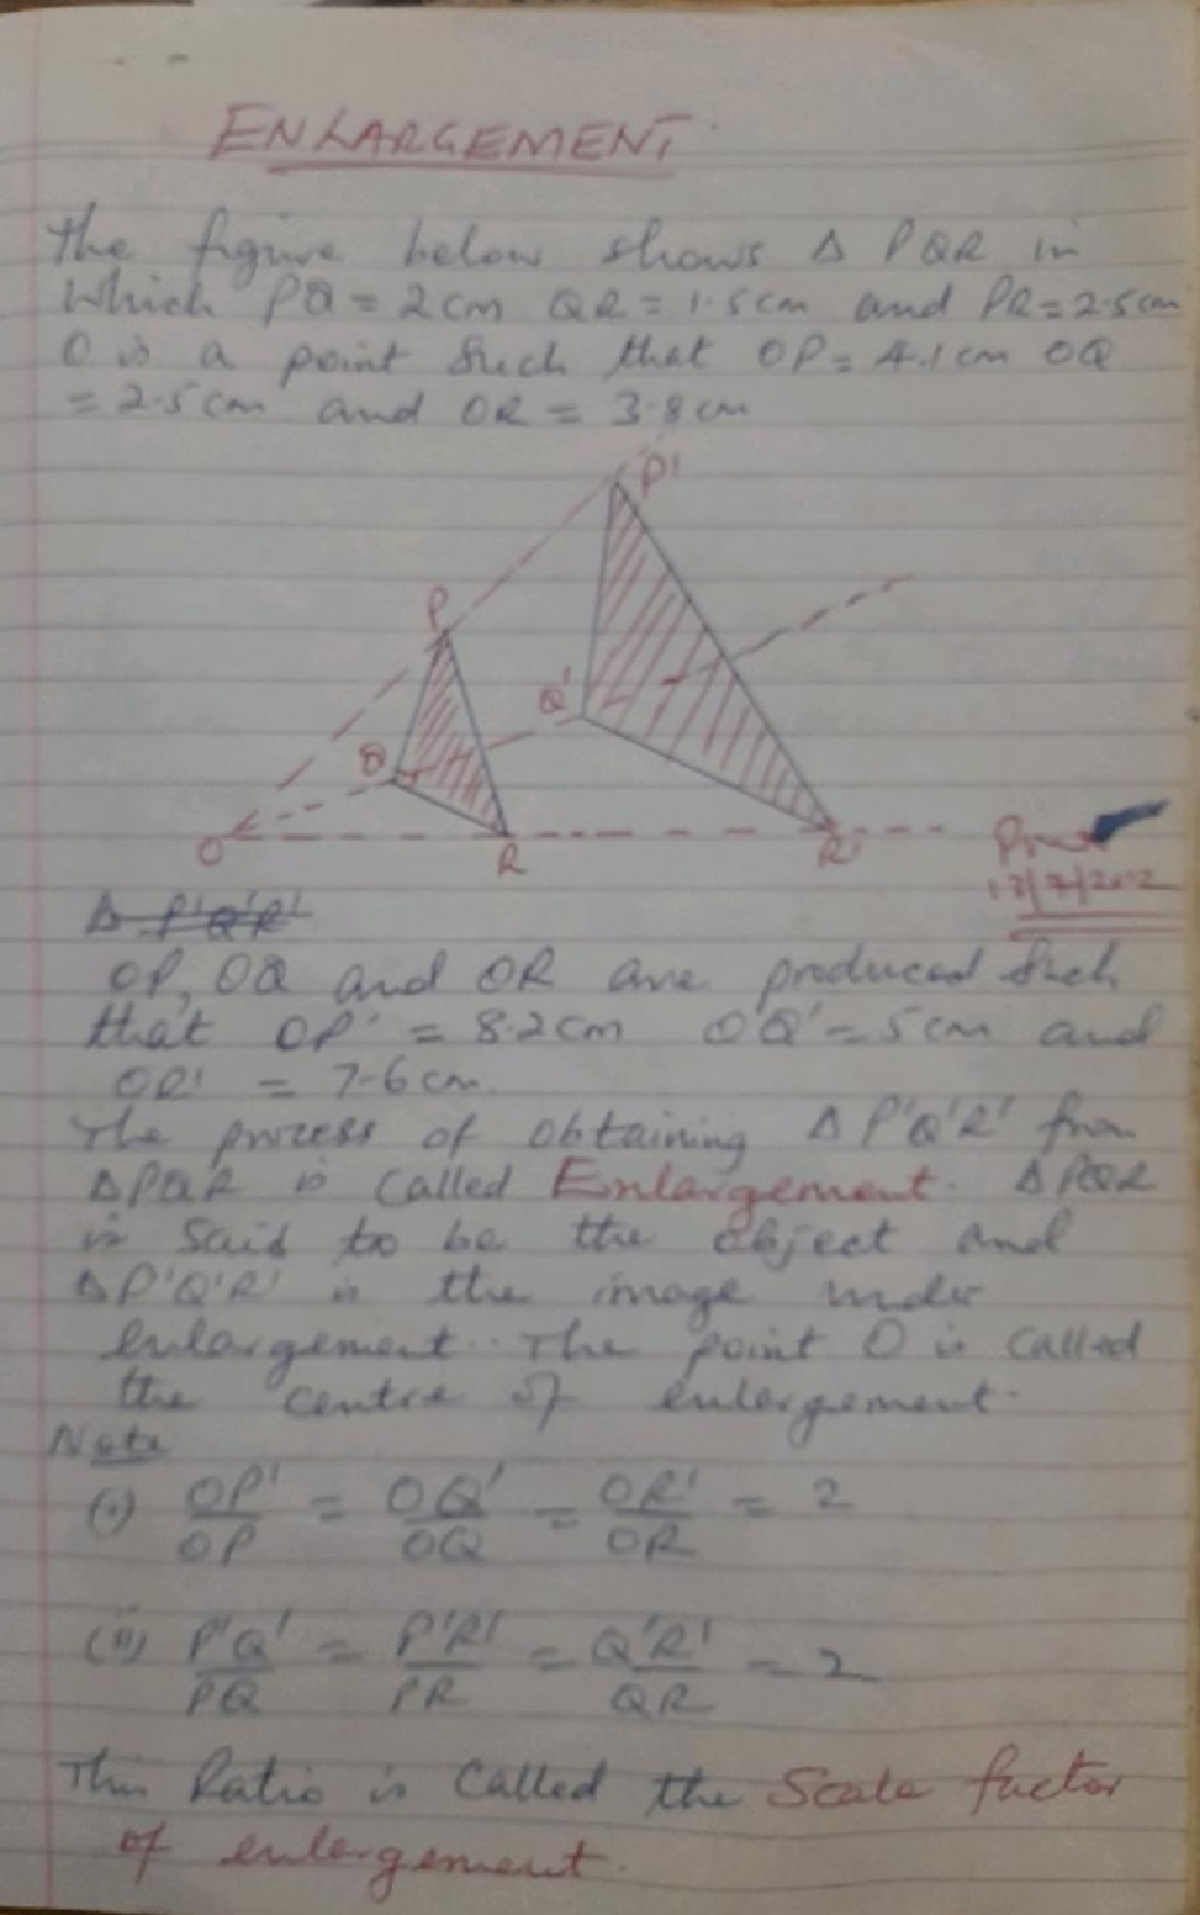 ENLARGEMENT
The figure below shows Δ PQR in
which PQ = 2cm QR = 1.5cm and PR = 2.5cm
O is a point such that OP = 4.1cm OQ
= 2.5cm and OR = 3.8cm
P'
P
Q'
Q
O
R
R'
Δ P'Q'R'
OP, OQ and OR are produced such
that OP' = 8.2cm OQ' = 5cm and
OR' = 7.6cm.
The process of obtaining Δ P'Q'R' from
ΔPQR is called Enlargement. ΔPQR
is said to be the object and
ΔP'Q'R' is the image under
enlargement. The point O is called
the centre of enlargement.
Note
(i) OP'/OP = OQ'/OQ = OR'/OR = 2
(ii) P'Q'/PQ = P'R'/PR = Q'R'/QR = 2
This Ratio is called the Scale factor
of enlargement.